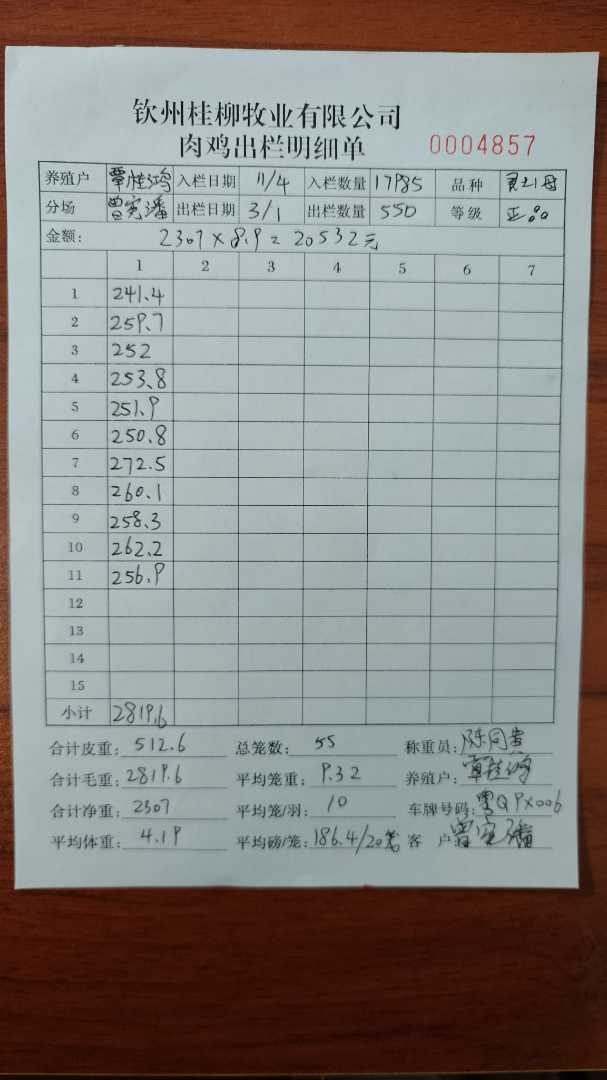 钦州桂柳牧业有限公司
肉鸡出栏明细单 0004857
养殖户 覃桂鸿 入栏日期 11/4 入栏数量 17985 品种 灵土母
分场 曾宪潘 出栏日期 3/1 出栏数量 550 等级 正品
金额: 2307×8.9=20532元
1 2 3 4 5 6 7
1 241.4
2 259.7
3 252
4 253.8
5 251.9
6 250.8
7 272.5
8 260.1
9 258.3
10 262.2
11 256.9
12
13
14
15
小计 2819.6
合计皮重: 512.6 总笼数: 55 称重员: 陈同贵
合计毛重: 2819.6 平均笼重: 9.32 养殖户: 覃桂鸿
合计净重: 2307 平均笼/羽: 10 车牌号码: QPX006
平均体重: 4.19 平均磅/笼: 186.4/20笼 客户 曾宪潘